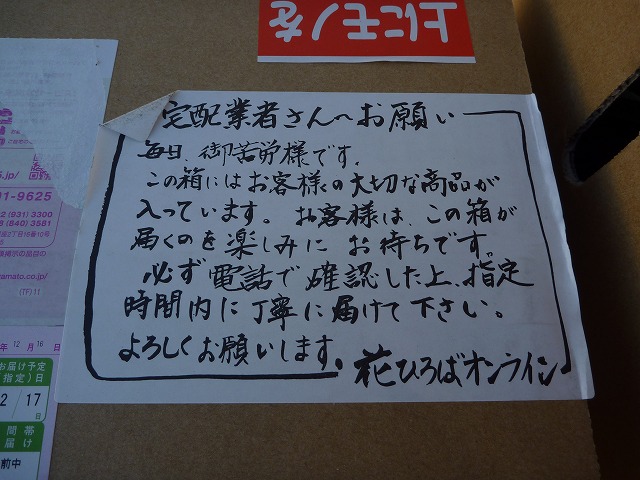 上にモノを
宅配業者さんへお願い
毎日、御苦労様です。
この箱にはお客様の大切な商品が
入っています。お客様は、この箱が
届くのを楽しみにお待ちです。
必ず電話で確認した上、指定
時間内に丁寧に届けて下さい。
よろしくお願いします。
花ひろばオンライン
01-9625
2 (931) 3300
8 (840) 3581
amato.co.jp/
(TF)11
年 12 月 16 日
お届け予定
(指定)日
2 / 17 日
間帯
届け
前中